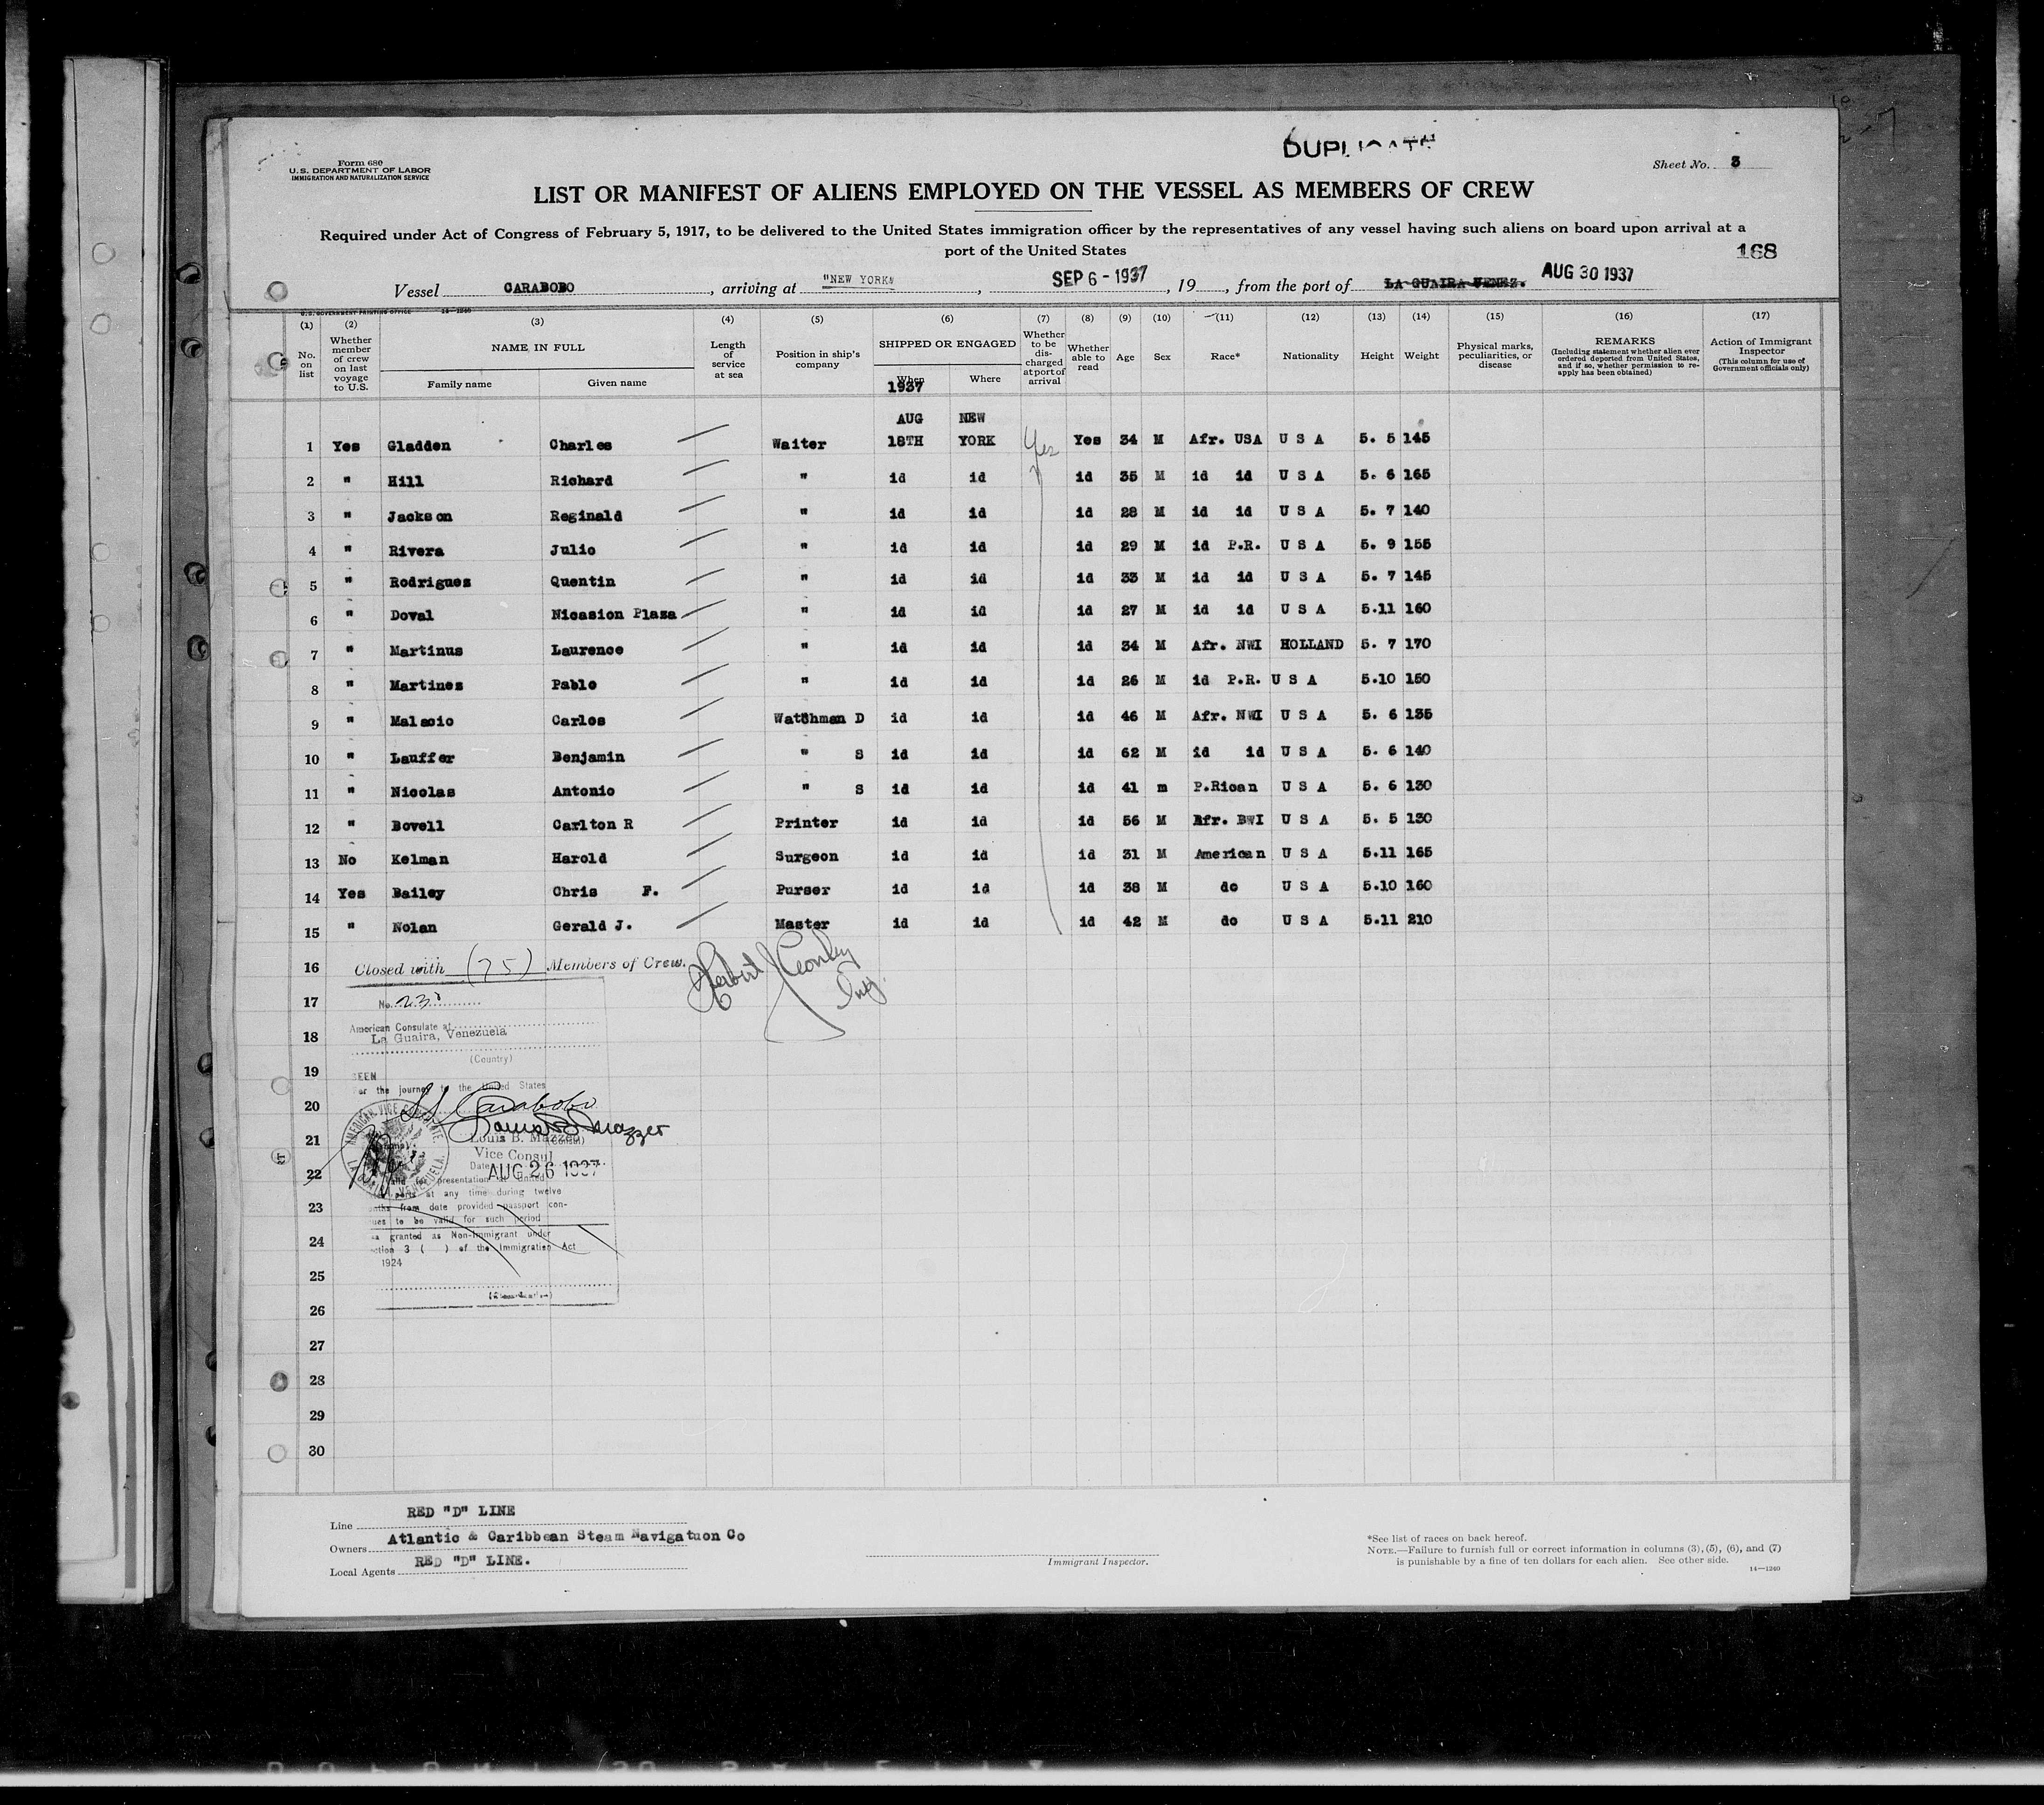 DUPLICATE
Form 680
U. S. DEPARTMENT OF LABOR
IMMIGRATION AND NATURALIZATION SERVICE
Sheet No. 3
LIST OR MANIFEST OF ALIENS EMPLOYED ON THE VESSEL AS MEMBERS OF CREW
Required under Act of Congress of February 5, 1917, to be delivered to the United States immigration officer by the representatives of any vessel having such aliens on board upon arrival at a
port of the United States
168
Vessel CARABOBO, arriving at "NEW YORK", SEP 6 - 1937, 19, from the port of LA GUAIRA VENEZ. AUG 30 1937
U.S. GOVERNMENT PRINTING OFFICE 14—1240
(1) (2) (3) (4) (5) (6) (7) (8) (9) (10) (11) (12) (13) (14) (15) (16) (17)
No. on list
Whether member of crew on last voyage to U.S.
NAME IN FULL
Family name
Given name
Length of service at sea
Position in ship's company
SHIPPED OR ENGAGED
When
1937
Where
Whether to be discharged at port of arrival
Whether able to read
Age
Sex
Race*
Nationality
Height
Weight
Physical marks, peculiarities, or disease
REMARKS
(Including statement whether alien ever ordered deported from United States, and if so, whether permission to re-apply has been obtained)
Action of Immigrant Inspector
(This column for use of Government officials only)
AUG NEW
1 Yes Gladden Charles Waiter 18TH YORK Yes Yes 34 M Afr. USA U S A 5. 5 145
2 " Hill Richard " id id id 35 M id id U S A 5. 6 165
3 " Jackson Reginald " id id id 28 M id id U S A 5. 7 140
4 " Rivera Julio " id id id 29 M id P.R. U S A 5. 9 155
5 " Rodrigues Quentin " id id id 33 M id id U S A 5. 7 145
6 " Doval Nicasion Plaza " id id id 27 M id id U S A 5.11 160
7 " Martinus Laurence " id id id 34 M Afr. NWI HOLLAND 5. 7 170
8 " Martines Pablo " id id id 26 M id P.R. U S A 5.10 150
9 " Malacio Carlos Watchman D id id id 46 M Afr. NWI U S A 5. 6 135
10 " Lauffer Benjamin " S id id id 62 M id id U S A 5. 6 140
11 " Nicolas Antonio " S id id id 41 m P.Rican U S A 5. 6 130
12 " Bovell Carlton R Printer id id id 56 M Afr. BWI U S A 5. 5 130
13 No Kelman Harold Surgeon id id id 31 M American U S A 5.11 165
14 Yes Bailey Chris F. Purser id id id 38 M do U S A 5.10 160
15 " Nolan Gerald J. Master id id id 42 M do U S A 5.11 210
16 Closed with (75) Members of Crew.
17 No.
18 American Consulate at
La Guaira, Venezuela
(Country)
19 SEEN
For the journey to the United States
20 SS Carabobo
21 Louis B. Mazzeo
Vice Consul
AMERICAN VICE CONSULATE
LA GUAIRA, VENEZUELA.
22 Date AUG 26 1937
Valid for presentation at United
ports at any time during twelve
23 months from date provided passport con-
ues to be valid for such period
24 granted as Non-Immigrant under
ction 3 ( ) of the Immigration Act
1924
25
26
27
28
29
30
Line RED "D" LINE
Owners Atlantic & Caribbean Steam Navigatuon Co
Local Agents RED "D" LINE.
Immigrant Inspector.
*See list of races on back hereof.
NOTE.—Failure to furnish full or correct information in columns (3), (5), (6), and (7)
is punishable by a fine of ten dollars for each alien. See other side.
14—1240